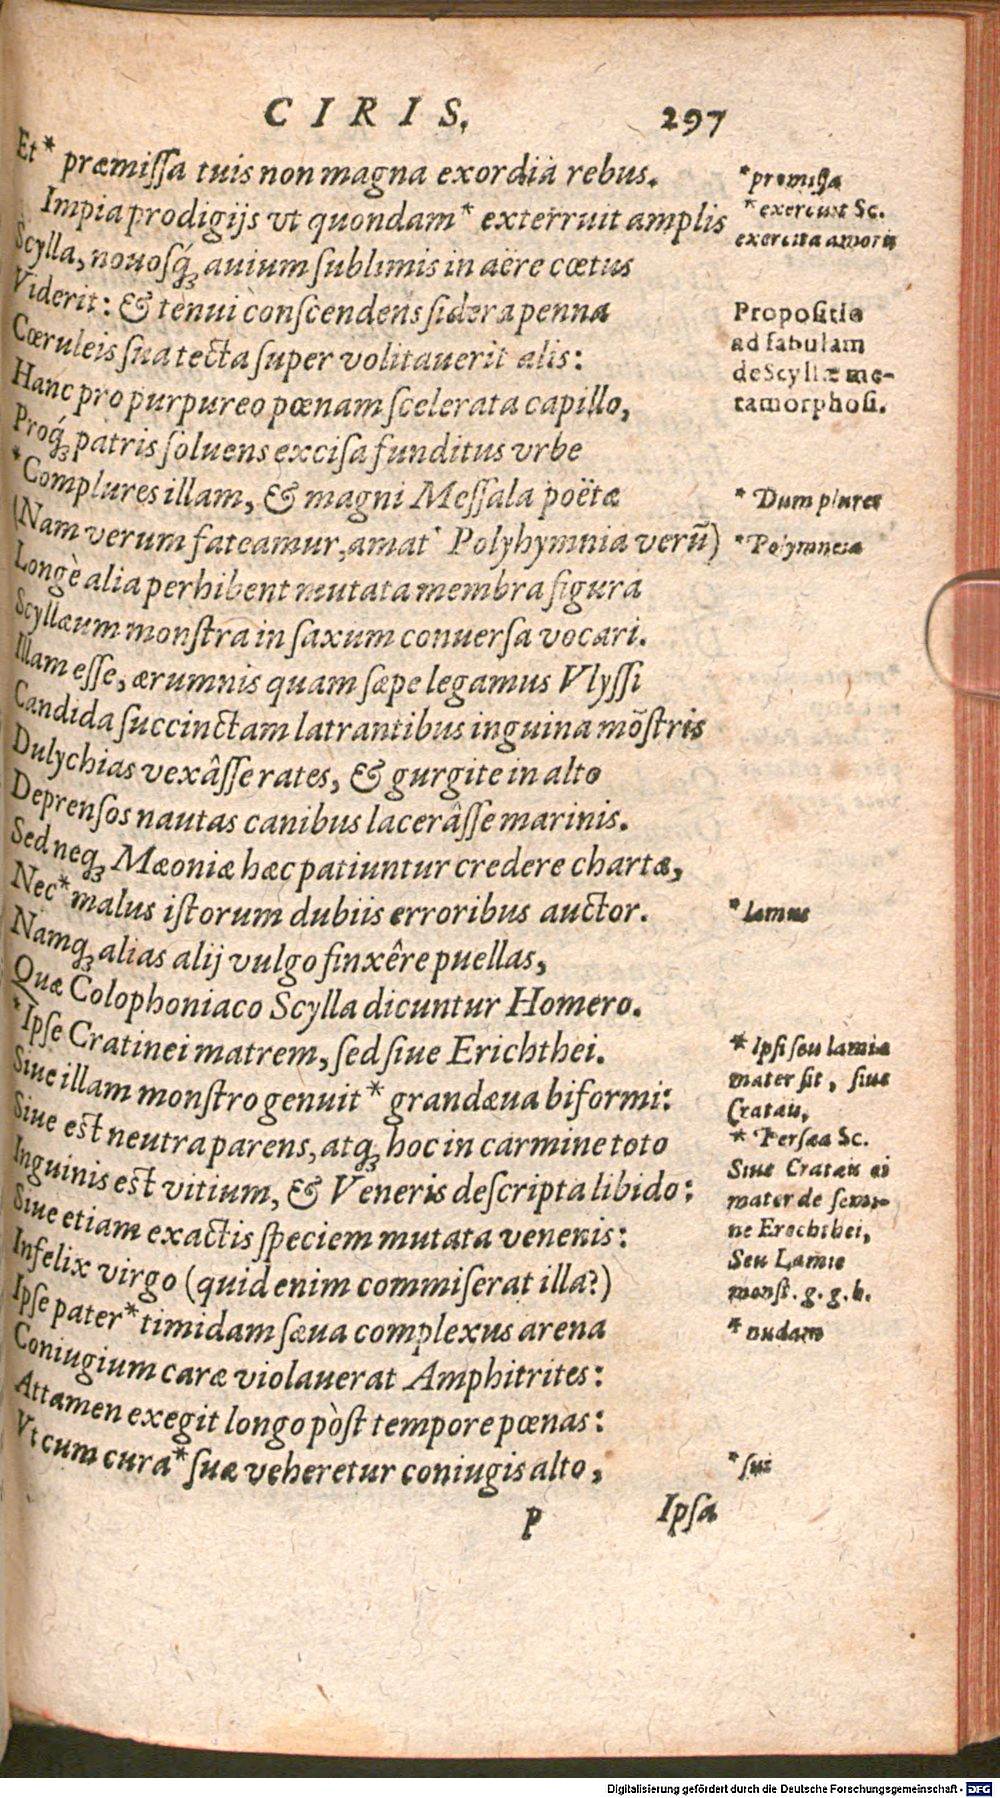 CIRIS. 297
Et* præmiſſa tuis non magna exordia rebus.
Impia prodigijs vt quondam* exterruit amplis
Scylla, nouoſq́; auium ſublimis in aëre cœtus
Viderit: & tenui conſcendens ſidera penna
Cœruleis ſua tecta ſuper volitauerit alis:
Hanc pro purpureo pœnam ſcelerata capillo,
Proq́; patris ſoluens exciſa funditus vrbe
*Complures illam, & magni Meſſala poëtæ
(Nam verum fateamur, amat* Polyhymnia verũ)
Longè alia perhibent mutata membra figura
Scyllæum monſtra in ſaxum conuerſa vocari.
Illam eſſe, ærumnis quam ſæpe legamus Vlyſſi
Candida ſuccinctam latrantibus inguina mõſtris
Dulychias vexâſſe rates, & gurgite in alto
Deprenſos nautas canibus lacerâſſe marinis.
Sed neq; Mæoniæ hæc patiuntur credere chartæ,
Nec* malus iſtorum dubiis erroribus auctor.
Namq; alias alij vulgo finxêre puellas,
Quæ Colophoniaco Scylla dicuntur Homero.
*Ipſe Cratinei matrem, ſed ſiue Erichthei.
Siue illam monſtro genuit* grandæua biformi:
Siue eſt neutra parens, atq; hoc in carmine toto
Inguinis eſt vitium, & Veneris deſcripta libido:
Siue etiam exactis ſpeciem mutata venenis:
Infelix virgo (quid enim commiſerat illa?)
Ipſe pater* timidam ſæua complexus arena
Coniugium caræ violauerat Amphitrites:
Attamen exegit longo pòſt tempore pœnas:
Vt cum cura* ſuæ veheretur coniugis alto,
P Ipſa
*promiſſa
*exercuit Sc.
exercita amoris
Propoſitio
ad fabulam
de Scyllæ me-
tamorphoſi.
* Dum plures
*Polymneia
*lamus
* Ipſi ſeu lamia
mater ſit, ſiue
Cratais,
* Perſæa Sc.
Siue Cratæis ei
mater de ſemi-
ne Erechthei,
Seu Lamie
monſt. g. g. b.
* nudam
*ſui
Digitalisierung gefördert durch die Deutsche Forschungsgemeinschaft - DFG